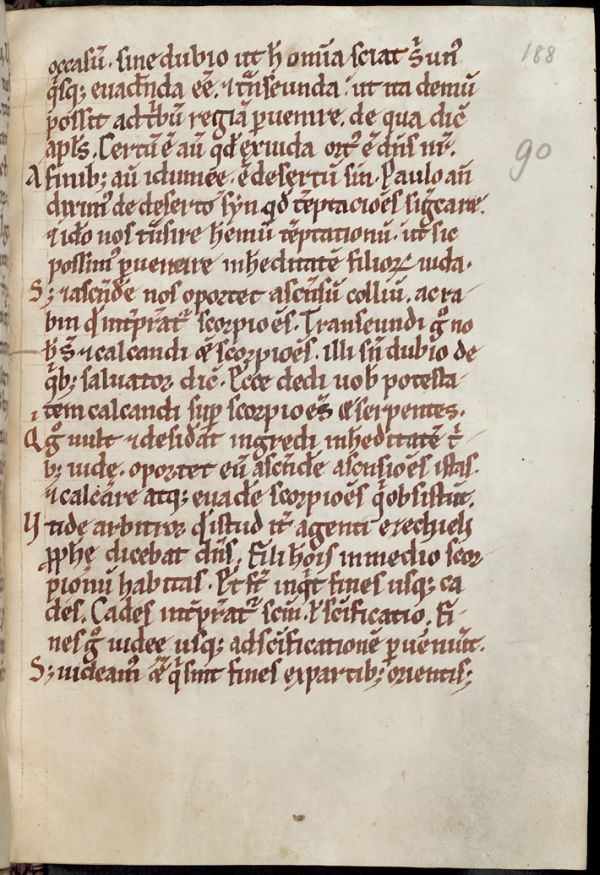 188
90
occasū. sine dubio ut h̄ om̄ia sciat s̄ un᷒
q̇sq; euadēnda eē. ⁊ t̄nseunda. ut ita demū
possit ad t̄bū regiā ꝑuenire. de qua dic̄
apl̄s. Certū ē aū qđ ex iuda ort᷒ ē dn̄s nr̄.
A finib; aū idumee. ē desertū sin. Paulo an̄
dixim᷒ de deserto syn qđ tēptacioēs siḡcare.
⁊ ido nos t̄nsire hemū tēptationū. ut sic
possim᷒ ꝑuenire in heditatē filioꝝ iuda.
S; ⁊ ascēde nos oportet ascēsū colliū. acra
bin q̇ int̄p̄rat᷑ scorpioēs. Transeundi g̊ no
b̄ s̄ ⁊ calcandi ꝯ̄ scorpioēs. illi sn̄ dubio de
q̇b; saluator dic̄. Ecce dedi uob̄ potesta
tem calcandi suꝑ scorpioēs ⁊ serpentes.
Q g̊ uult ⁊ desiđat ingredi in heditatē t̄
b; iude. oportet eū ascēde ascēsioēs istas.
⁊ calcare atq; euade scorpioēs q̇ obsistūt.
Vn̄ tide arbitror q̇ istud it̄ agenti ezechieli
ꝓphe dicebat dn̄s. Fili hōis in medio scor
pionū habitas. Et fr̄t inq̇t fines usq; ca
des. Cades int̄p̄rat᷑ scm̄. ł sc̄ificatio. Fi
nes g̊ iudee usq; ad sc̄ificationē ꝑueniūt.
S; uideam᷒ ꝯ̄ q̇ sint fines ex partib; orientis;